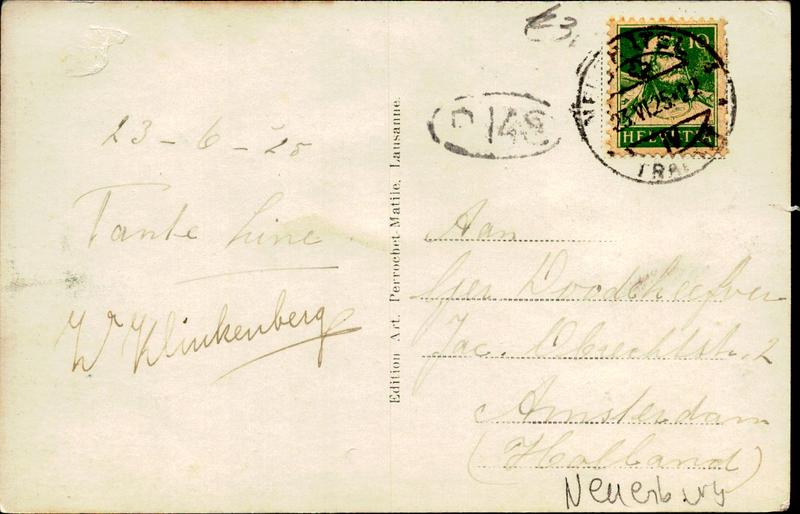 23 – 6 – 25
Tante Line
Wr Klinkenberg
Edition Art. Perrochet-Matile, Lausanne.
10
HELVETIA
23.VI.25.
Aan
Jac. Obrechtstr. 2
Amsterdam
(Holland)
Neuerburg